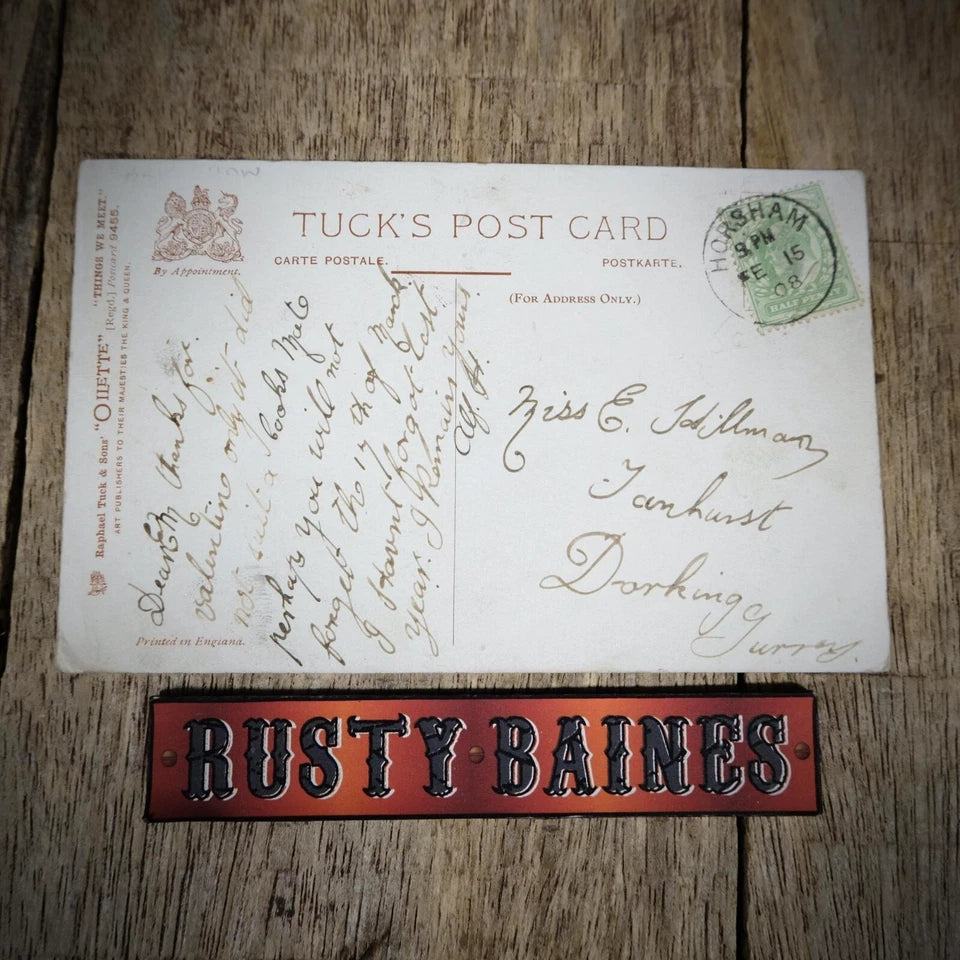 TUCK'S POST CARD
CARTE POSTALE.
POSTKARTE.
(FOR ADDRESS ONLY.)
By Appointment.
Raphael Tuck & Sons' "OILETTE" "THINGS WE MEET."
[Regd.] Postcard 9455.
ART PUBLISHERS TO THEIR MAJESTIES THE KING & QUEEN.
Printed in England.
HORSHAM
PM
FE 15
08
HALF PENNY
Dear Em thanks for
valentine only it did
not suit a books Mate
perhaps you will not
forget the 17th of March
I Havnt forgot last
year. I Remain yours
Alf. H.
Miss E. Hillman
Tanhurst
Dorking
Surrey.
RUSTY BAINES